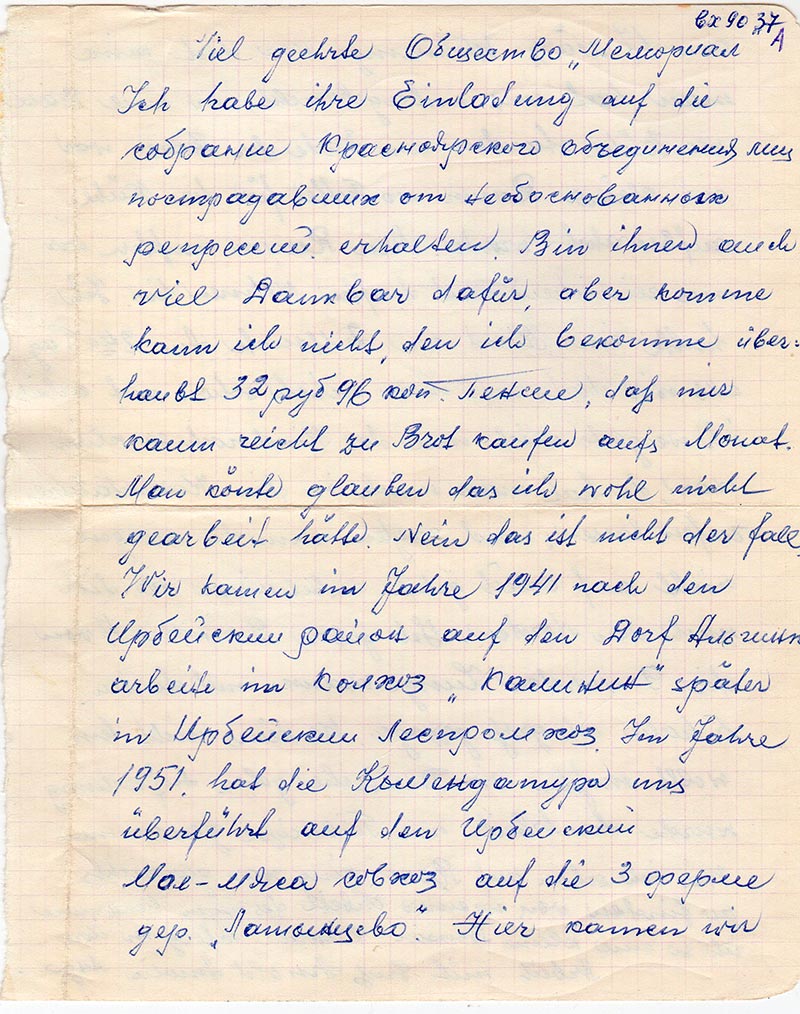 вх 90 37
А
Viel geehrte Общество „Мемориал"
Ich habe ihre Einladung auf die
собрание Красноярского объединения лиц
пострадавших от необоснованных
репрессий. erhalten. Bin ihnen auch
viel Dankbar dafür, aber komme
kann ich nicht, den ich bekomme über-
haubt 32 руб 96 коп. Пенсие, daß mir
kaum reicht zu Brot kaufen aufs Monat.
Man könte glauben das ich wohl nicht
gearbeit hätte. Nein das ist nicht der fall,
Wir kamen im Jahre 1941 nach den
Ирбейский район auf den Dorf
arbeite im Колхоз „Калинин" später
in Ирбейский Леспромхоз. Im Jahre
1951. hat die Комендатура uns
überführt auf den Ирбейский
Мол-мяса совхоз auf die 3 ферме
дер. „Латынцево". Hier kamen wir